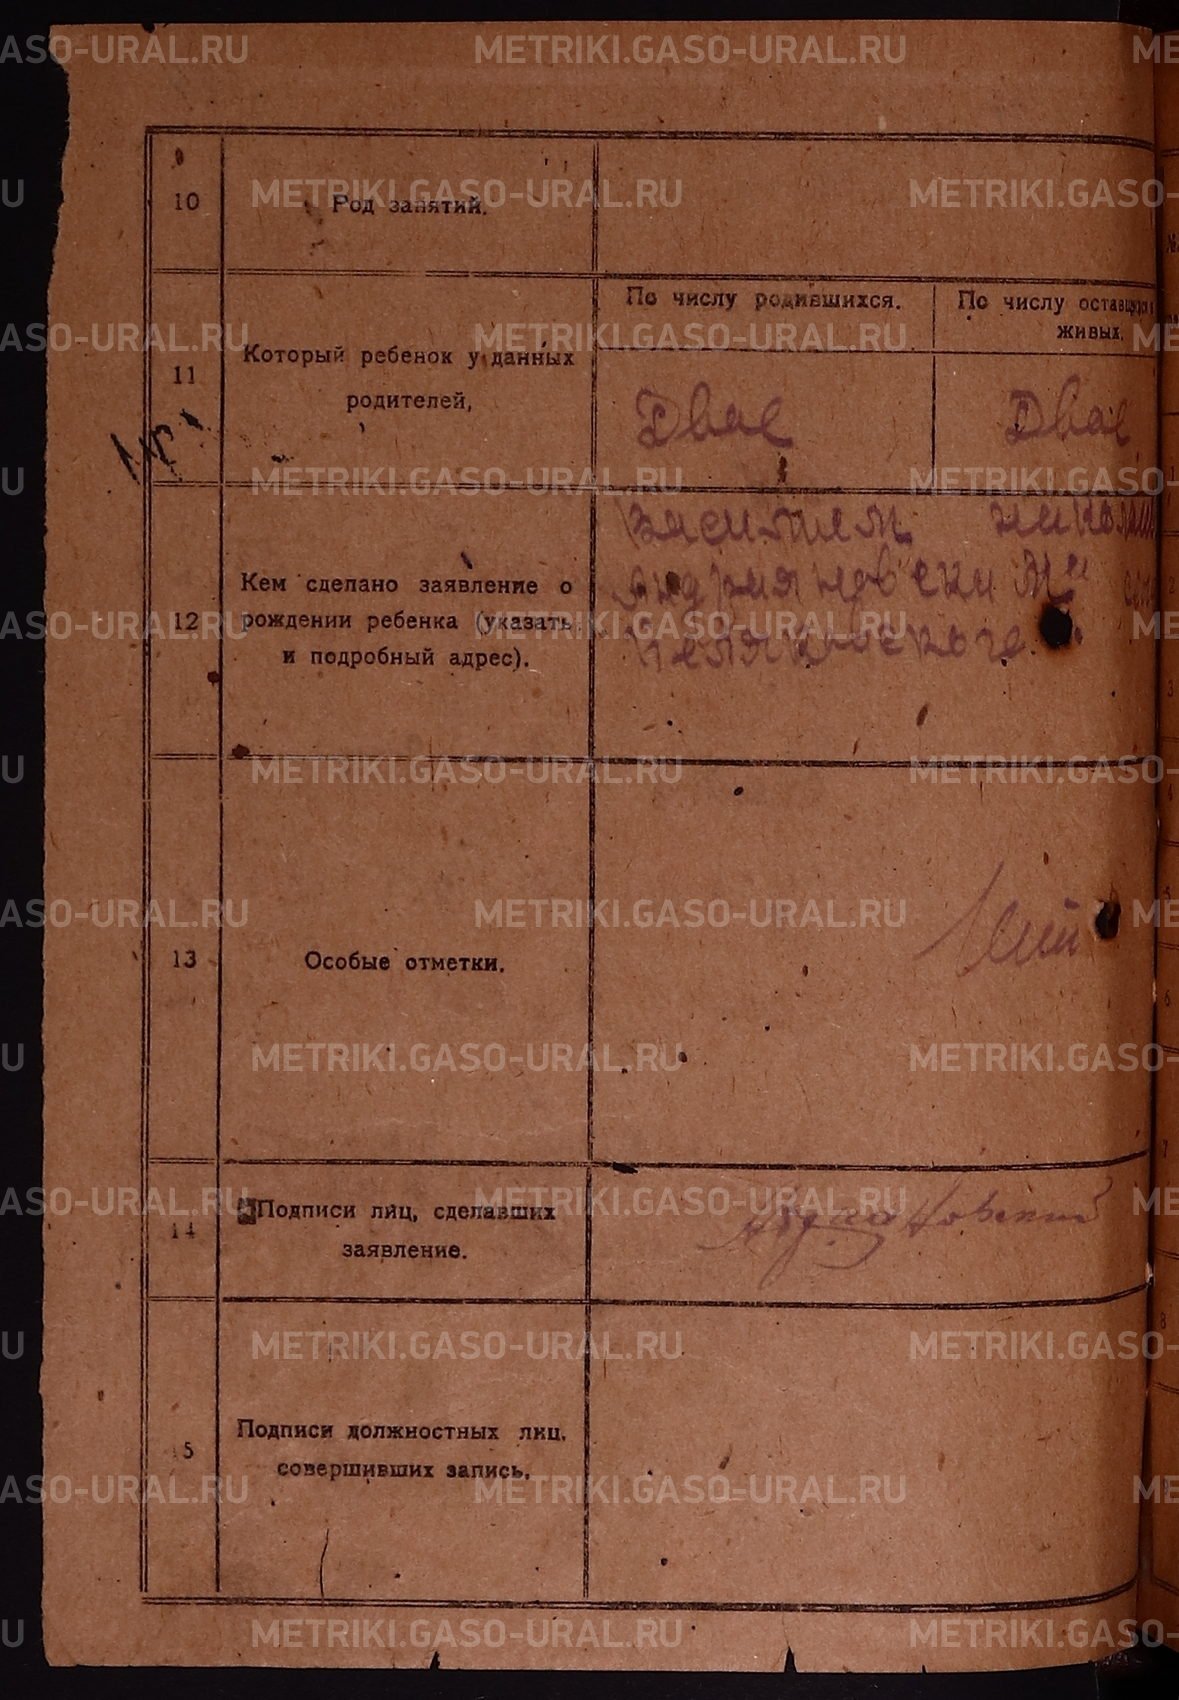 10 Род занятий.
11 Который ребенок у данных
родителей,
По числу родившихся.
По числу оставшихся
живых.
Двое
Двое
12 Кем сделано заявление о
рождении ребенка (указать
и подробный адрес).
Василием
Андрияновским
13 Особые отметки.
14 Подписи лиц, сделавших
заявление.
5 Подписи должностных лиц,
совершивших запись.
METRIKI.GASO-URAL.RU